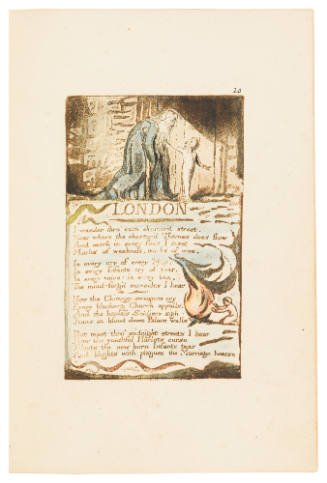 20
LONDON
I wander thro' each charter'd street,
Near where the charter'd Thames does flow
And mark in every face I meet
Marks of weakness, marks of woe.
In every cry of every Man,
In every Infants cry of fear,
In every voice; in every ban,
The mind-forg'd manacles I hear
How the Chimney-sweepers cry
Every blackning Church appalls,
And the hapless Soldiers sigh
Runs in blood down Palace walls
But most thro' midnight streets I hear
How the youthful Harlots curse
Blasts the new-born Infants tear
And blights with plagues the Marriage hearse